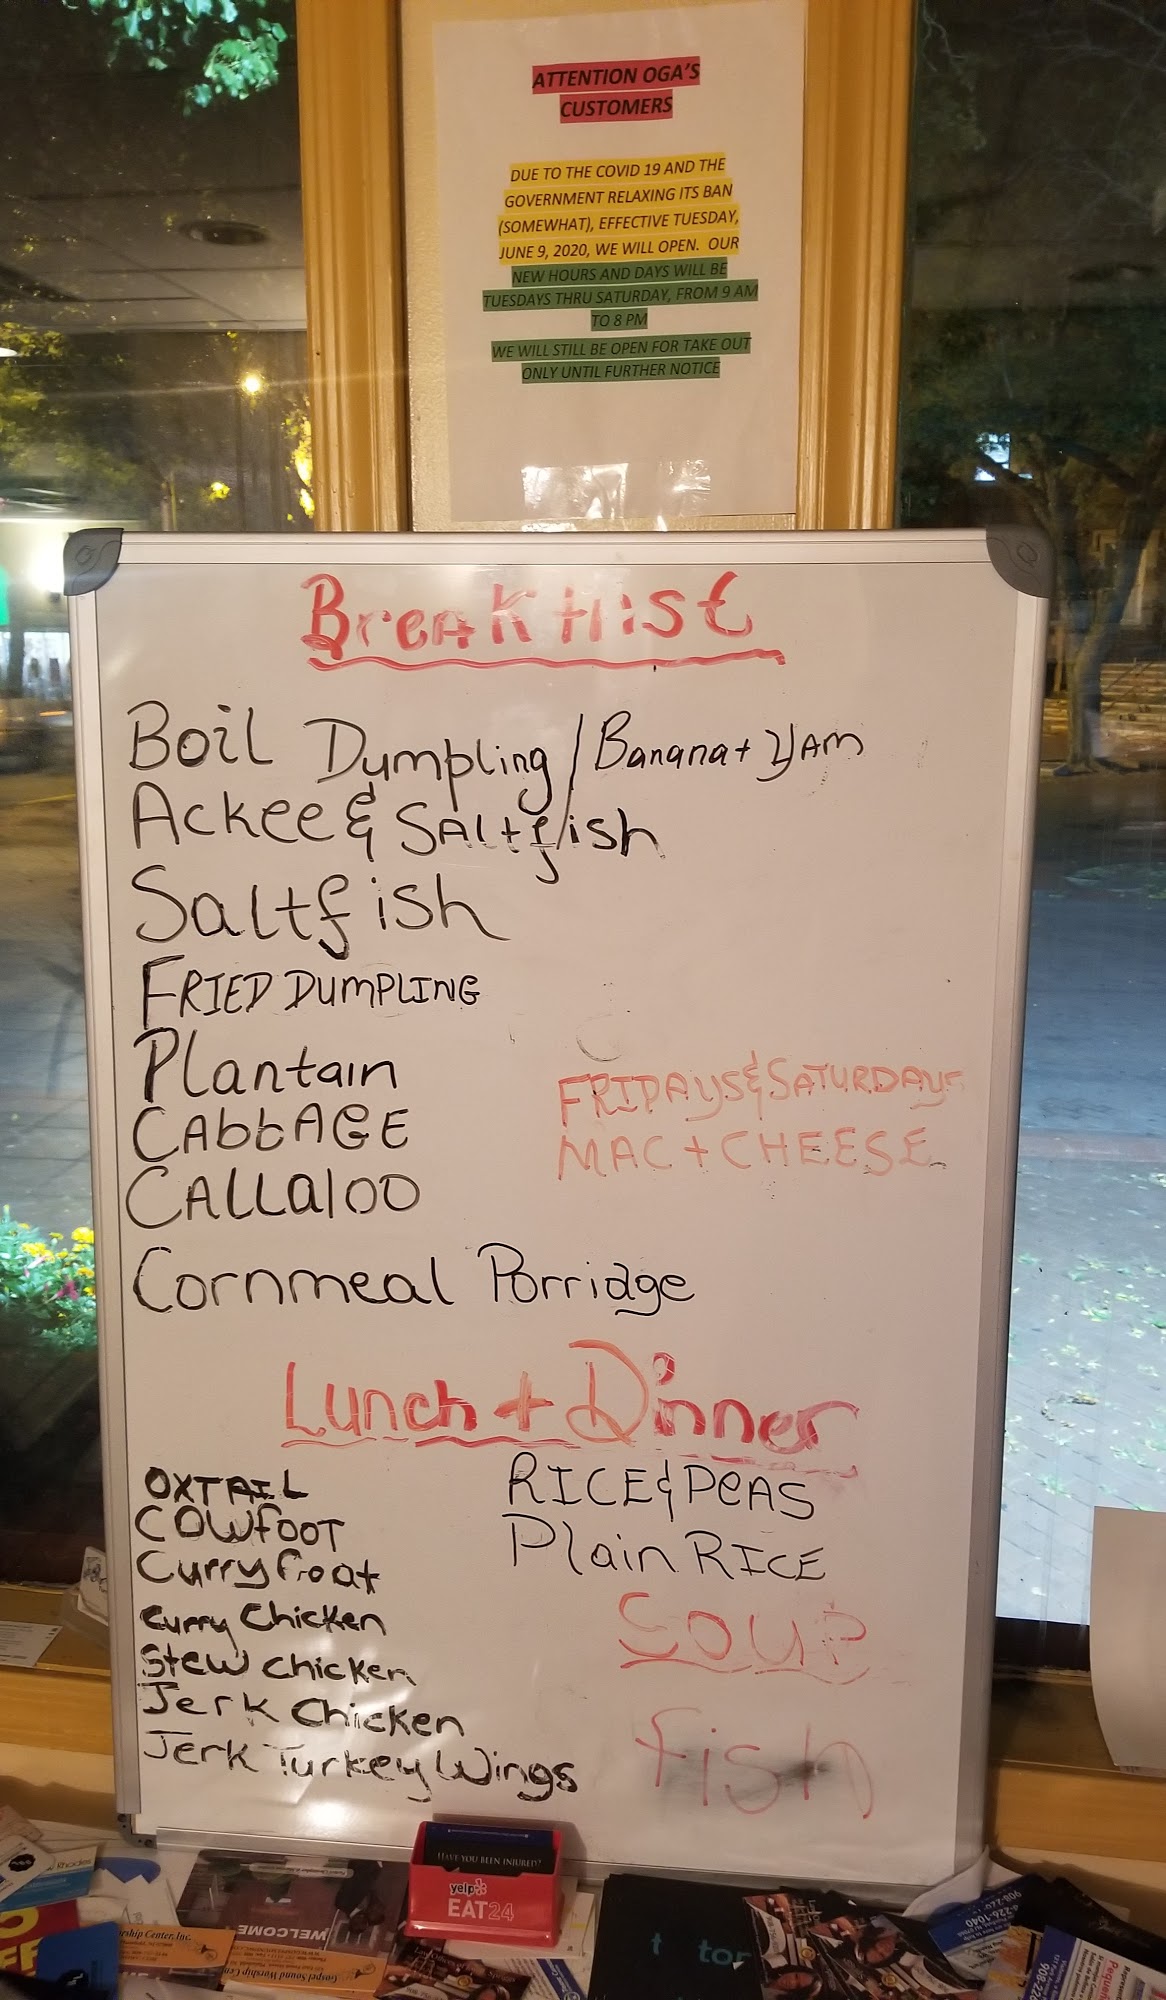 ATTENTION OGA'S
CUSTOMERS
DUE TO THE COVID 19 AND THE
GOVERNMENT RELAXING ITS BAN
(SOMEWHAT), EFFECTIVE TUESDAY,
JUNE 9, 2020, WE WILL OPEN. OUR
NEW HOURS AND DAYS WILL BE
TUESDAYS THRU SATURDAY, FROM 9 AM
TO 8 PM
WE WILL STILL BE OPEN FOR TAKE OUT
ONLY UNTIL FURTHER NOTICE
Breakfast
Boil Dumpling / Banana + YAM
Ackee & SALtfish
Saltfish
FRIED DUMPLING
Plantain
CAbbAGE
CALLaloo
FRIDAYS & SATURDAYS
MAC + CHEESE
Cornmeal Porridge
Lunch + Dinner
OXTAIL
COWfOOT
Curry Goat
Curry Chicken
Stew chicken
Jerk Chicken
Jerk Turkey Wings
RICE & PeAS
Plain RICE
Soup
fish
HAVE YOU BEEN INJURED?
yelp
EAT24
WELCOME
Gospel Sound Worship Center
rship Center, Inc.
t tor
226-1040
908-226
908-22